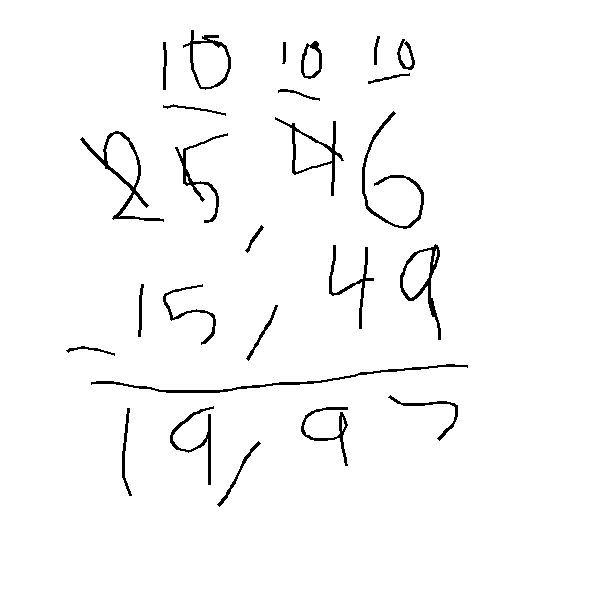 10 10 10
25,46
- 15,49
19,97